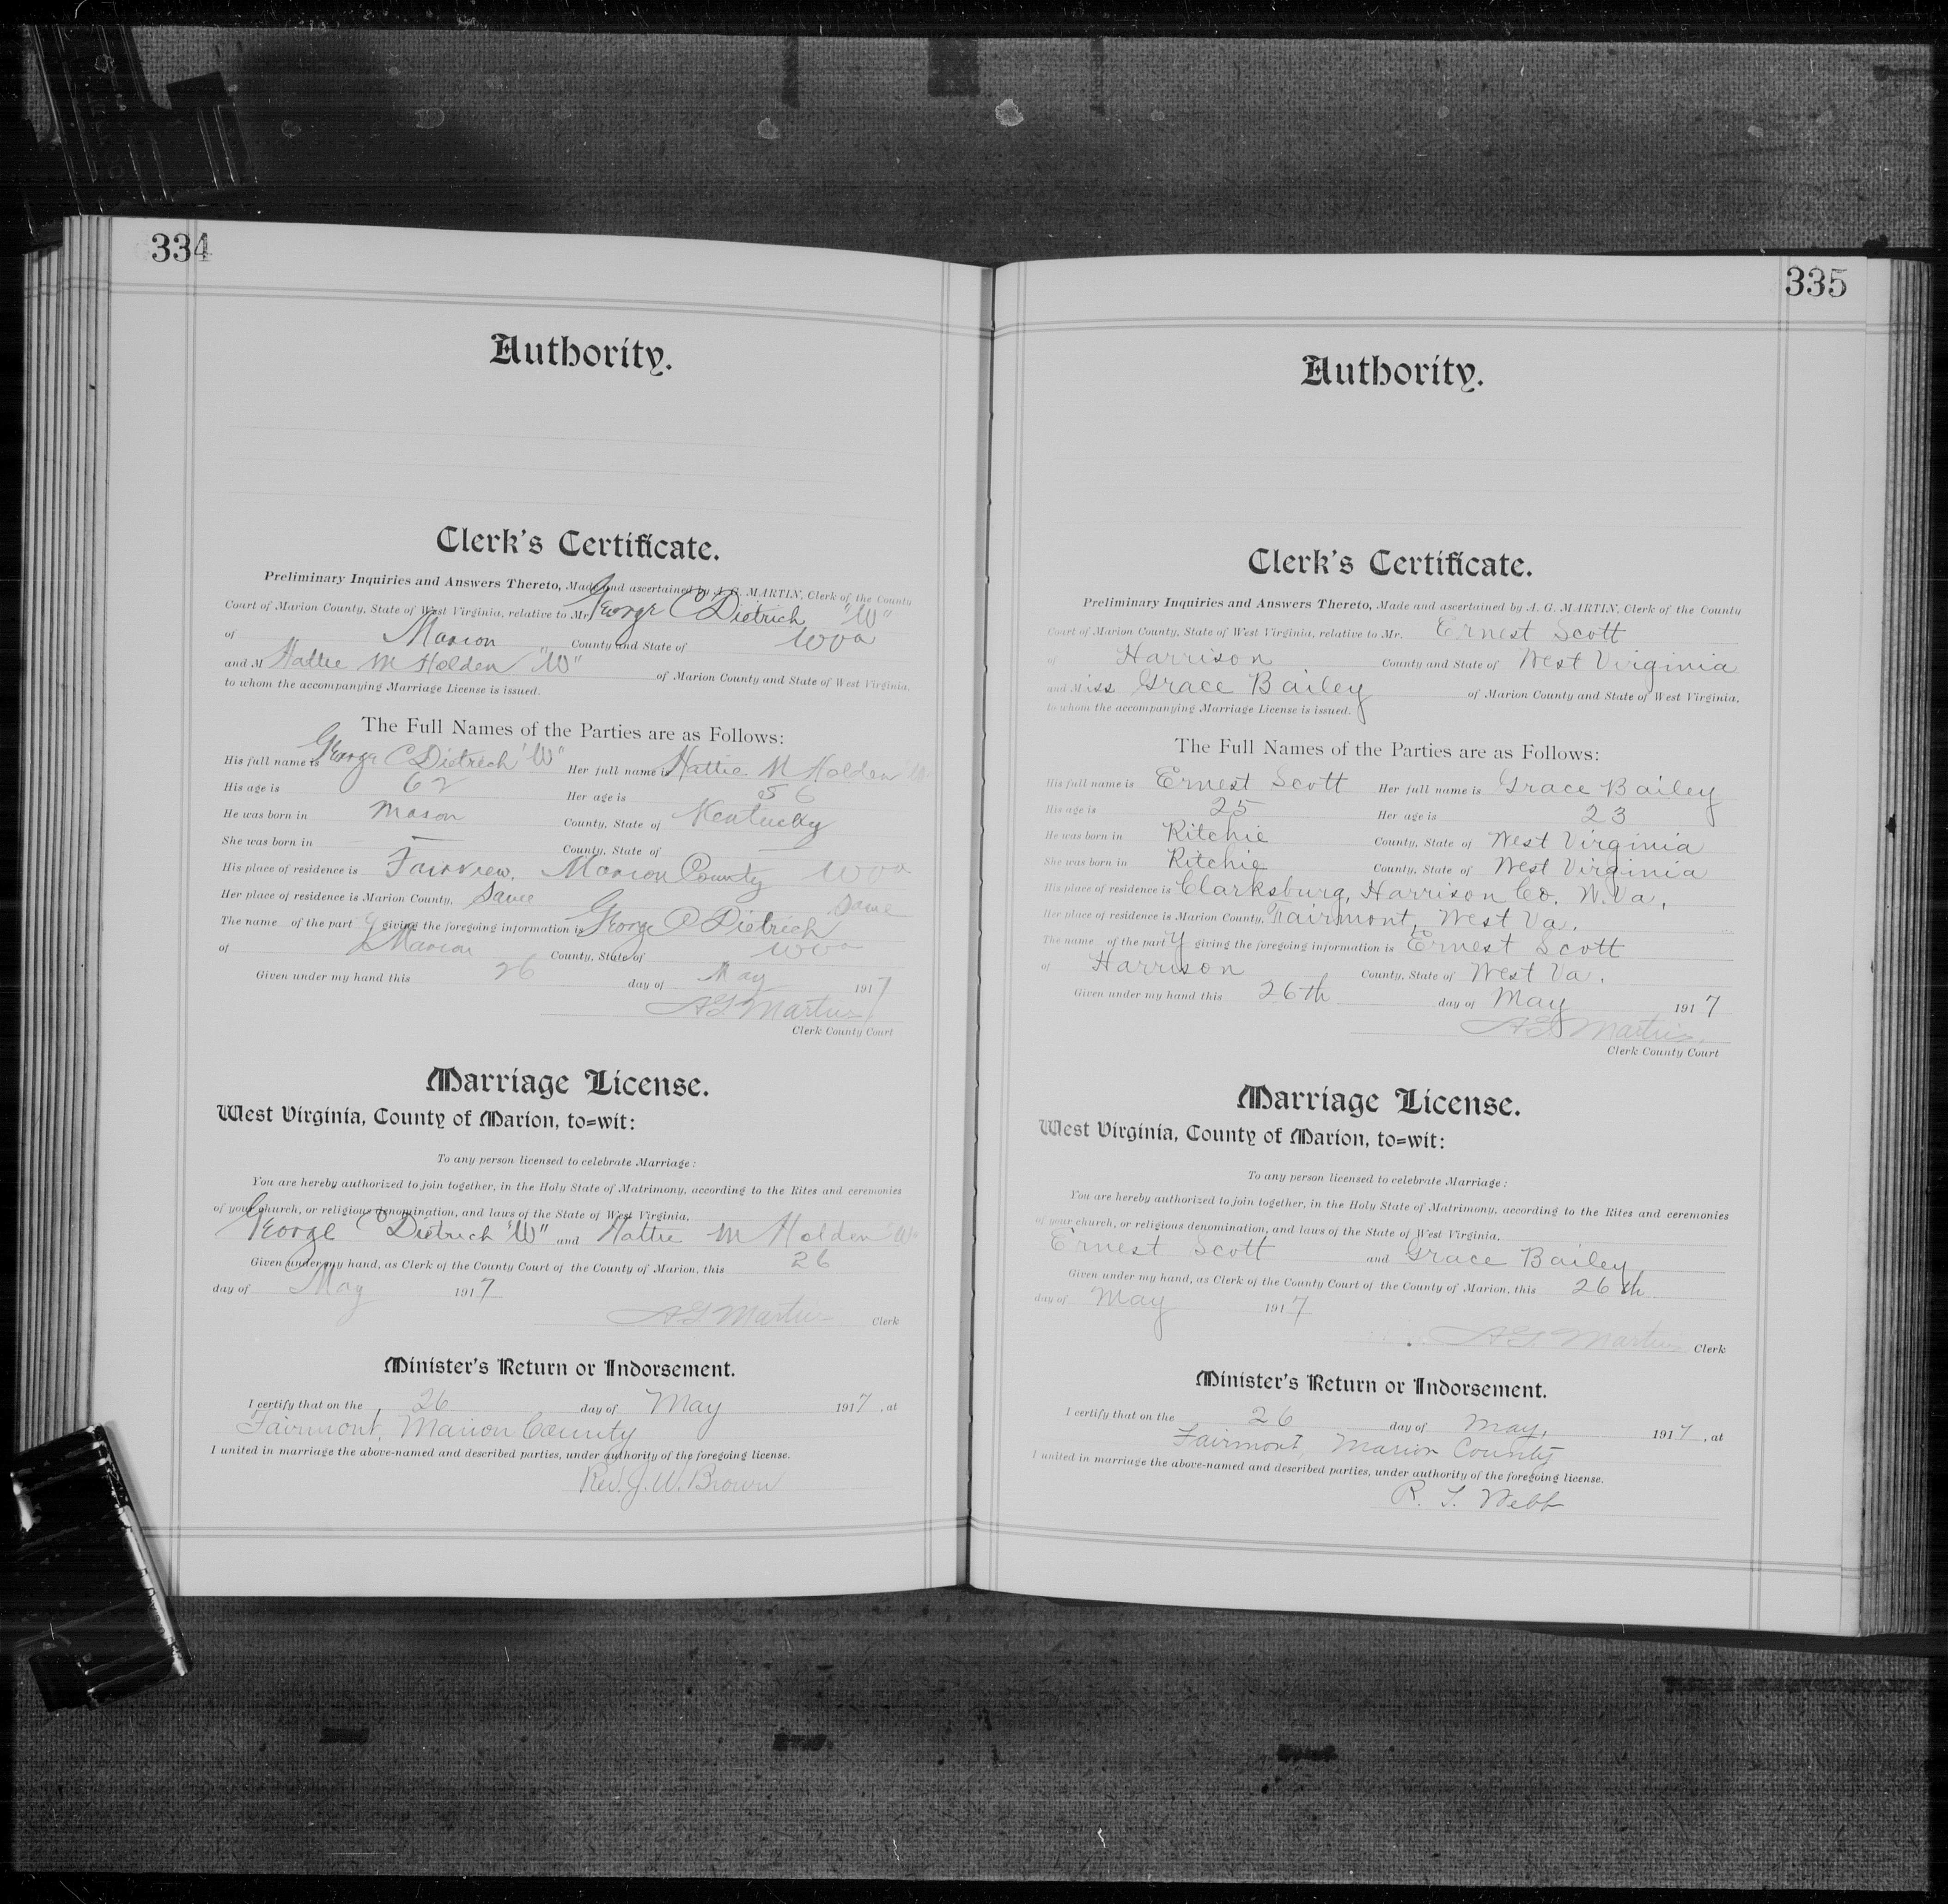 334
Authority.
Clerk's Certificate.
Preliminary Inquiries and Answers Thereto, Made and ascertained by A. G. MARTIN, Clerk of the County
Court of Marion County, State of West Virginia, relative to Mr. George C Dietrich "W"
of Marion County and State of WVa
and M Hattie M Holden "W" of Marion County and State of West Virginia,
to whom the accompanying Marriage License is issued.
The Full Names of the Parties are as Follows:
His full name is George C Dietrich "W" Her full name is Hattie M Holden W
His age is 62 Her age is 56
He was born in Mason County, State of Kentucky
She was born in — County, State of —
His place of residence is Fairview, Marion County WVa
Her place of residence is Marion County, Same Same
The name of the party giving the foregoing information is George C Dietrich
of Marion County, State of WVa
Given under my hand this 26 day of May 1917
A G Martin
Clerk County Court
Marriage License.
West Virginia, County of Marion, to=wit:
To any person licensed to celebrate Marriage:
You are hereby authorized to join together, in the Holy State of Matrimony, according to the Rites and ceremonies
of your church, or religious denomination, and laws of the State of West Virginia,
George C Dietrich "W" and Hattie M Holden W
Given under my hand, as Clerk of the County Court of the County of Marion, this 26
day of May 1917
A G Martin Clerk
Minister's Return or Indorsement.
I certify that on the 26 day of May 1917, at
Fairmont, Marion County
I united in marriage the above-named and described parties, under authority of the foregoing license.
Rev. J. W. Brown
335
Authority.
Clerk's Certificate.
Preliminary Inquiries and Answers Thereto, Made and ascertained by A. G. MARTIN, Clerk of the County
Court of Marion County, State of West Virginia, relative to Mr. Ernest Scott
of Harrison County and State of West Virginia
and Miss Grace Bailey of Marion County and State of West Virginia,
to whom the accompanying Marriage License is issued.
The Full Names of the Parties are as Follows:
His full name is Ernest Scott Her full name is Grace Bailey
His age is 25 Her age is 23
He was born in Ritchie County, State of West Virginia
She was born in Ritchie County, State of West Virginia
His place of residence is Clarksburg, Harrison Co. W. Va,
Her place of residence is Marion County, Fairmont, West Va.
The name of the party giving the foregoing information is Ernest Scott
of Harrison County, State of West Va.
Given under my hand this 26th day of May 1917
A G Martin
Clerk County Court
Marriage License.
West Virginia, County of Marion, to=wit:
To any person licensed to celebrate Marriage:
You are hereby authorized to join together, in the Holy State of Matrimony, according to the Rites and ceremonies
of your church, or religious denomination, and laws of the State of West Virginia,
Ernest Scott and Grace Bailey
Given under my hand, as Clerk of the County Court of the County of Marion, this 26th
day of May 1917
A G Martin Clerk
Minister's Return or Indorsement.
I certify that on the 26 day of May, 1917, at
Fairmont, Marion County
I united in marriage the above-named and described parties, under authority of the foregoing license.
R. T. Webb